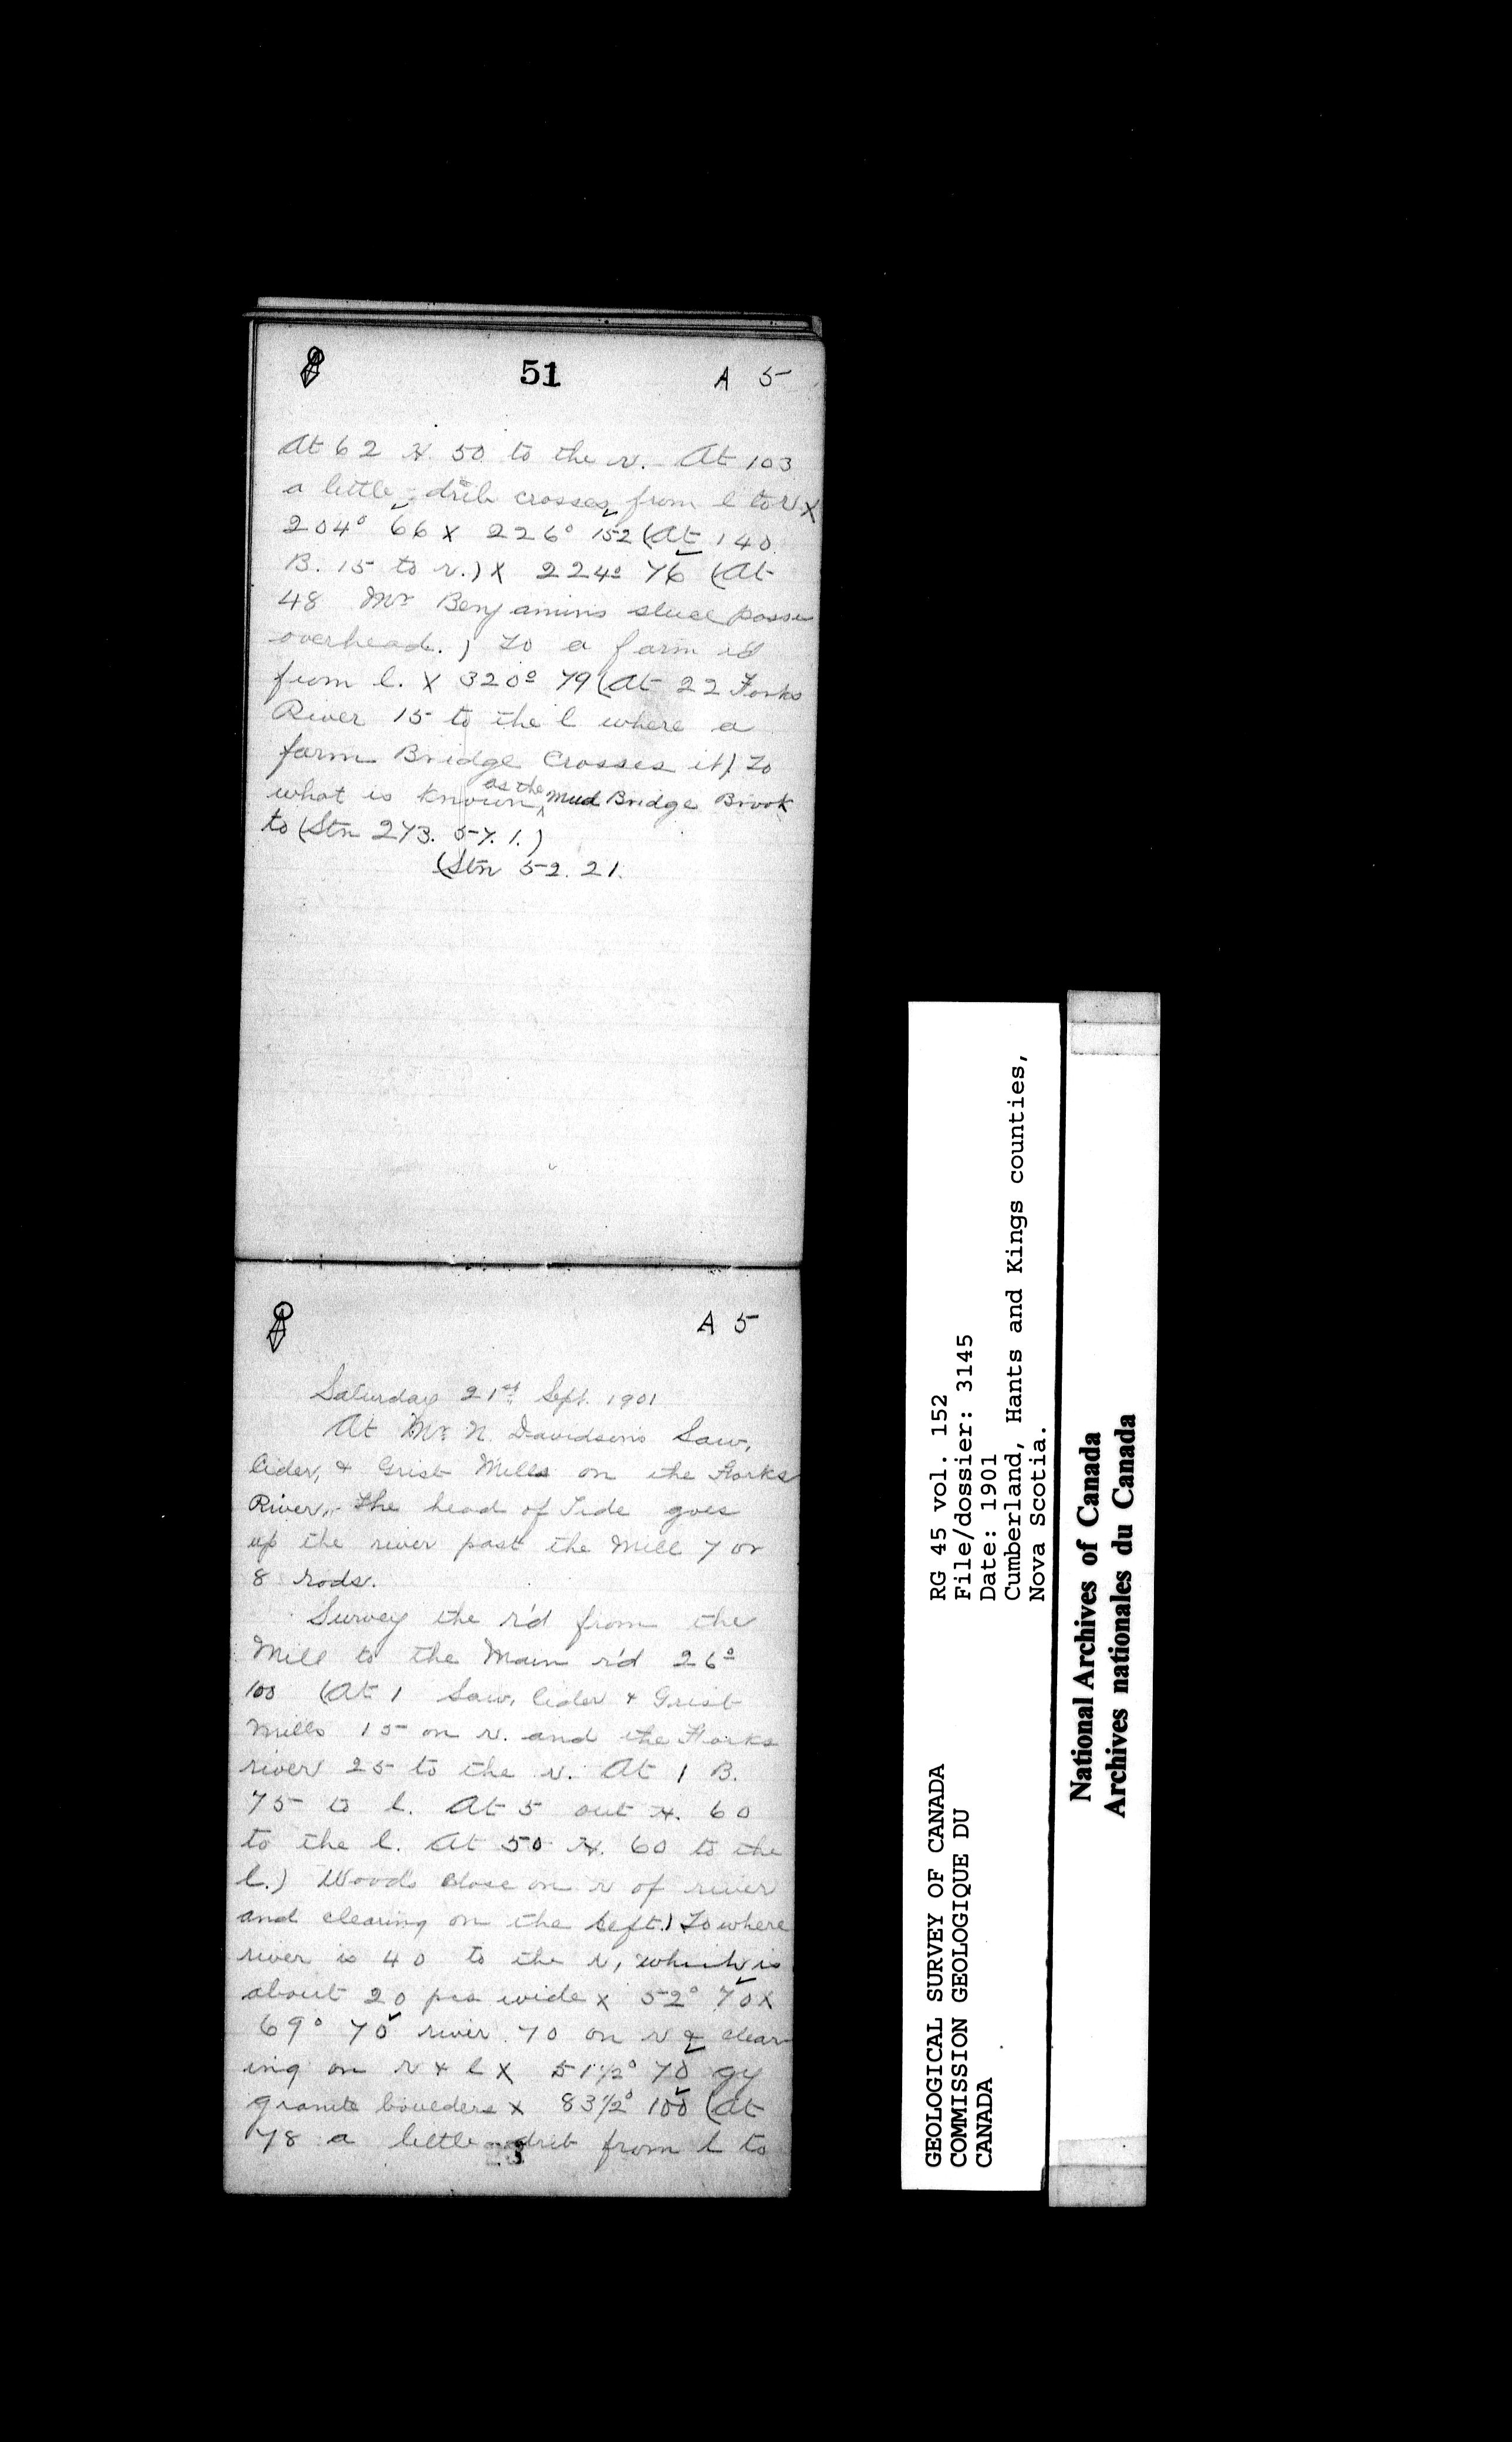 51
A 5
At 62 H. 50 to the r. At 103
a little drib crosses from l to r X
204° 66 X 226° 152 (At 140
B. 15 to r.) X 224° 76 (At
48 Mr Benjamins sluce passes
overhead.) To a farm rd
from l. X 320° 79 (At 22 Forks
River 15 to the l where a
farm Bridge Crosses it) To
what is known as the Mud Bridge Brook
to (Stn 273. 57. 1.)
(Stn 52. 21.
A 5
Saturday 21st Sept. 1901
At Mr N. Davidson's Saw,
Cider, & Grist Mills on the Forks
River, The head of Tide goes
up the river past the Mill 7 or
8 rods.
Survey the r'd from the
Mill to the Main r'd 26°
100 (At 1 Saw, Cider & Grist
Mills 15 on r. and the Forks
river 25 to the r. At 1 B.
75 to l. At 5 out H. 60
to the l. At 50 H. 60 to the
l.) Woods close on r of river
and clearing on the left.) To where
river is 40 to the r, which is
about 20 pcs wide X 52° 70 X
69° 70 river 70 on r & clear
ing on r & l X 51 1/2° 70 gy
granite boulders X 83 1/2° 100 (At
78 a little drib from l to
GEOLOGICAL SURVEY OF CANADA
COMMISSION GEOLOGIQUE DU
CANADA
RG 45 vol. 152
File/dossier: 3145
Date: 1901
Cumberland, Hants and Kings counties,
Nova Scotia.
National Archives of Canada
Archives nationales du Canada